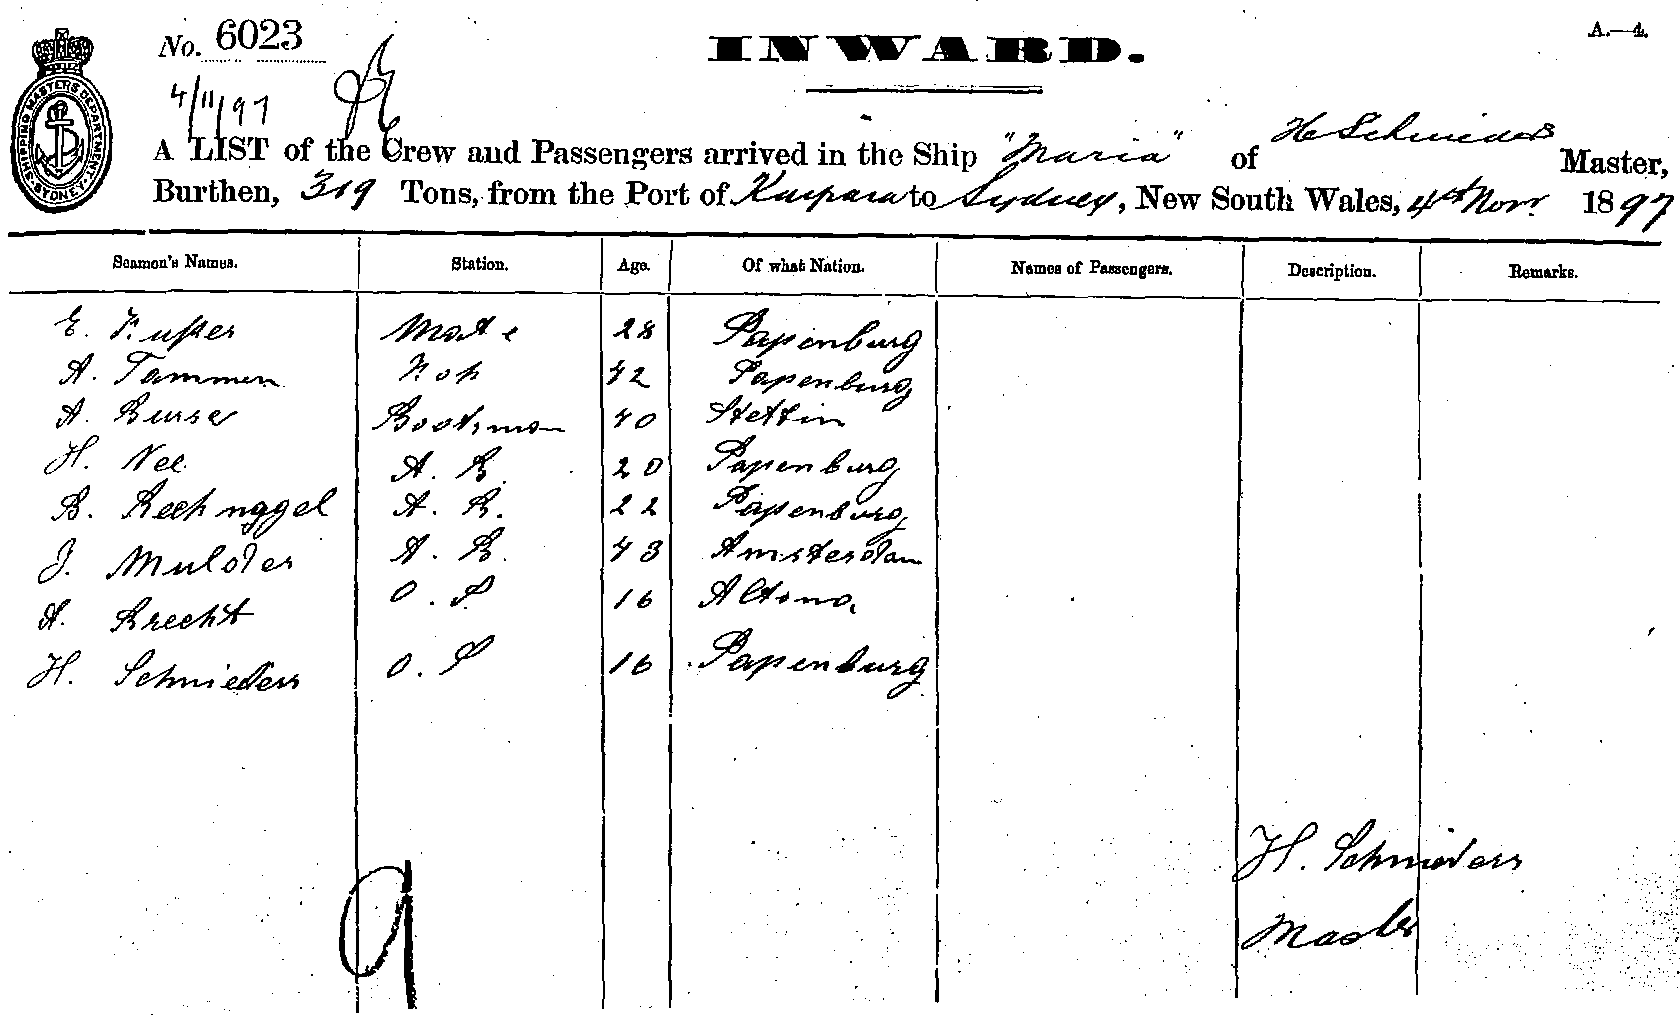 No. 6023
INWARD.
A.—4.
4/11/97
SHIPPING MASTERS DEPARTMENT SYDNEY
A LIST of the Crew and Passengers arrived in the Ship "Maria" of H Schnieders Master,
Burthen, 319 Tons, from the Port of Kaipara to Sydney, New South Wales, 4th Novr 1897
Seamen's Names. Station. Age. Of what Nation. Names of Passengers. Description. Remarks.
E. Mate 28 Papenburg
A. Tammen Kok 42 Papenburg
A. Buese Bootsman 40 Stettin
H. Nee A. B. 20 Papenburg
B. A. B. 22 Papenburg
J. Mulder A. B. 43 Amsterdam
A. Brecht O. S 16 Altona
H. Schnieders O. S 16 Papenburg
H. Schnieders
Master
9